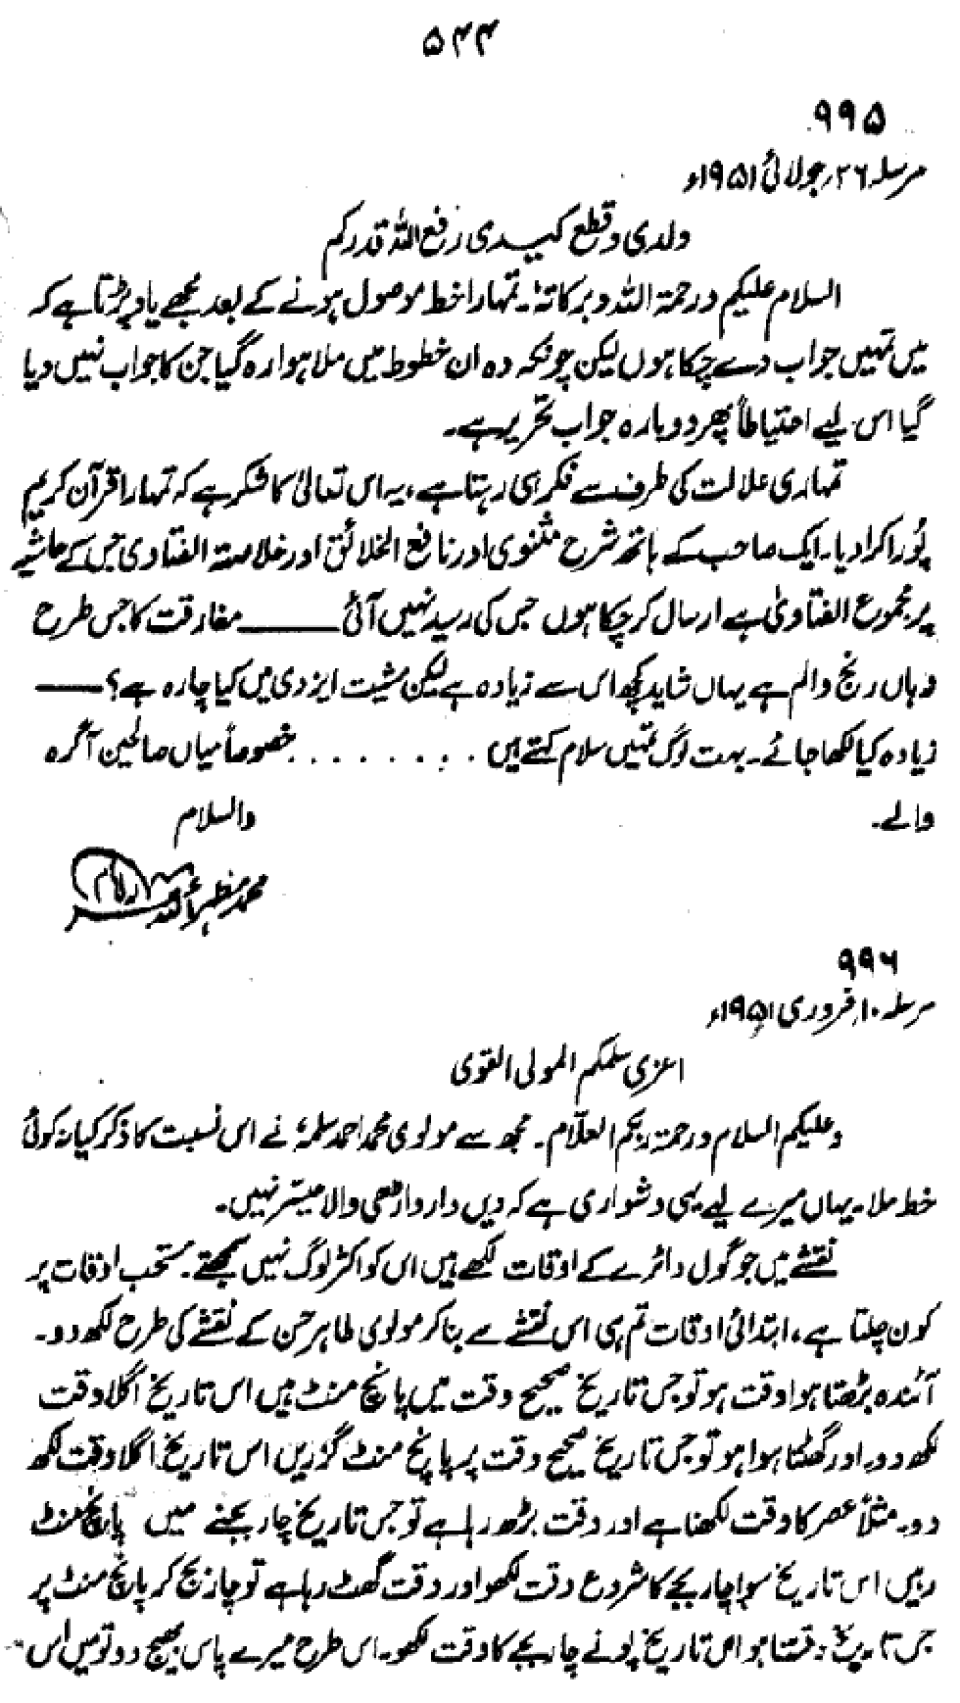 ۵۴۴
۹۹۵
مرسلہ ۲۶؍جولائی ۱۹۵۱ء
ولدی و قطع کبیدی رفع اللہ قدرکم
السلام علیکم ورحمۃ اللہ وبرکاتہٗ۔ تمہارا خط موصول ہونے کے بعد مجھے یاد پڑتا ہے کہ
میں تمہیں جواب دے چکا ہوں لیکن چونکہ وہ ان خطوط میں ملا ہوا رہ گیا جن کا جواب نہیں دیا
گیا اس لیے احتیاطاً پھر دوبارہ جواب تحریر ہے۔
تمہاری علالت کی طرف سے فکر ہی رہتا ہے، یہ اس تعالیٰ کا شکر ہے کہ تمہارا قرآن کریم
پُورا کرا دیا۔ ایک صاحب کے ہاتھ شرح مثنوی اور نافع الخلائق اور خلاصۃ الفتاویٰ جس کے حاشیہ
پر مجموع الفتاویٰ ہے ارسال کر چکا ہوں جس کی رسید نہیں آئی ــــــــ مفارقت کا جس طرح
وہاں رنج والم ہے یہاں شاید کچھ اس سے زیادہ ہے لیکن مشیت ایزدی میں کیا چارہ ہے؟ ـــــ
زیادہ کیا لکھا جائے۔ بہت لوگ تمہیں سلام کہتے ہیں ........ خصوصاً میاں صالحین آگرہ
والے۔
والسلام
محمد مظہر اللہ
۹۹۶
مرسلہ ۱۰؍فروری ۱۹۵۱ء
اعزی سلمکم المولی القوی
وعلیکم السلام ورحمۃ ربکم العلّام۔ مجھ سے مولوی محمد احمد سلمہٗ نے اس نسبت کا ذکر کیا نہ کوئی
خط ملا۔ یہاں میرے لیے یہی دشواری ہے کہ دیں دار داڑھی والا میسّر نہیں۔
نقشے میں جو گول دائرے کے اوقات لکھے ہیں اس کو اکثر لوگ نہیں سمجھتے۔ مستحب اوقات پر
کون چلتا ہے، ابتدائی اوقات تم ہی اس نقشے سے بنا کر مولوی طاہر حسن کے نقشے کی طرح لکھ دو۔
آئندہ بڑھتا ہوا وقت ہو تو جس تاریخ صحیح وقت میں پانچ منٹ ہیں اس تاریخ اگلا وقت
لکھ دو۔ اور گھٹتا ہوا ہو تو جس تاریخ صحیح وقت پر پانچ منٹ گزریں اس تاریخ اگلا وقت لکھ
دو۔ مثلاً عصر کا وقت لکھنا ہے اور وقت بڑھ رہا ہے تو جس تاریخ چار بجنے میں پانچ منٹ
رہیں اس تاریخ سوا چار بجے کا شروع وقت لکھو اور وقت گھٹ رہا ہے تو چار بج کر پانچ منٹ پر
جس تاریخ وقت ہو اس تاریخ پونے چار بجے کا وقت لکھو۔ اس طرح میرے پاس بھیج دو تو میں اس